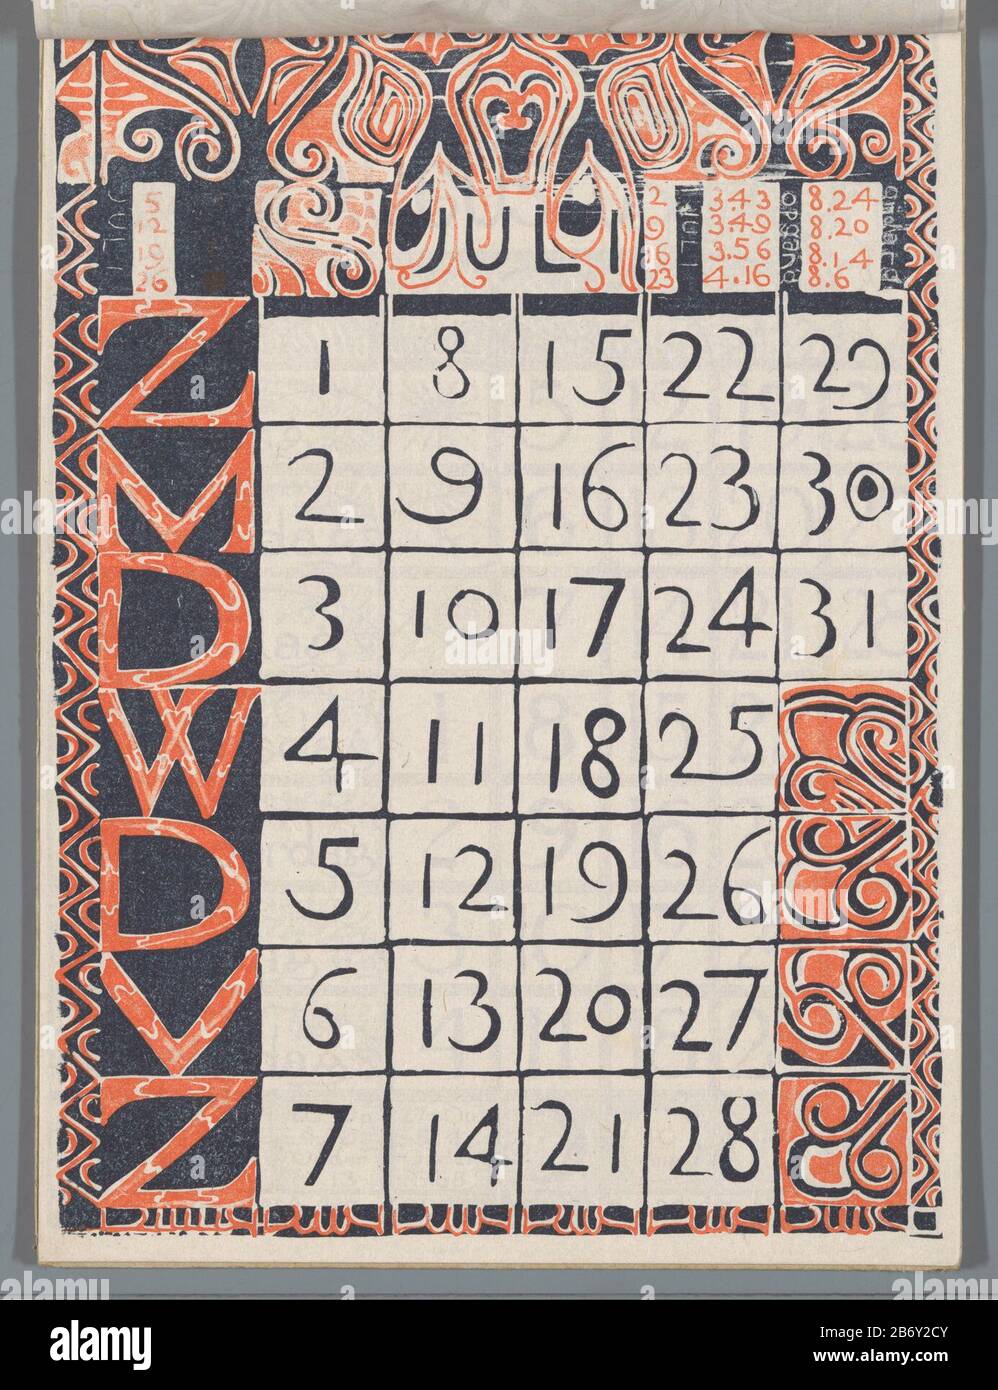 JULI 5 JULI 2 JULI 3.43 opgang 8.24
12 9 3.49 8.20
19 16 3.56 8.14
26 23 4.16 8.6
Z 1 8 15 22 29
M 2 9 16 23 30
D 3 10 17 24 31
W 4 11 18 25
D 5 12 19 26
V 6 13 20 27
Z 7 14 21 28
alamy
Image ID: 2B6Y2CY
www.alamy.com